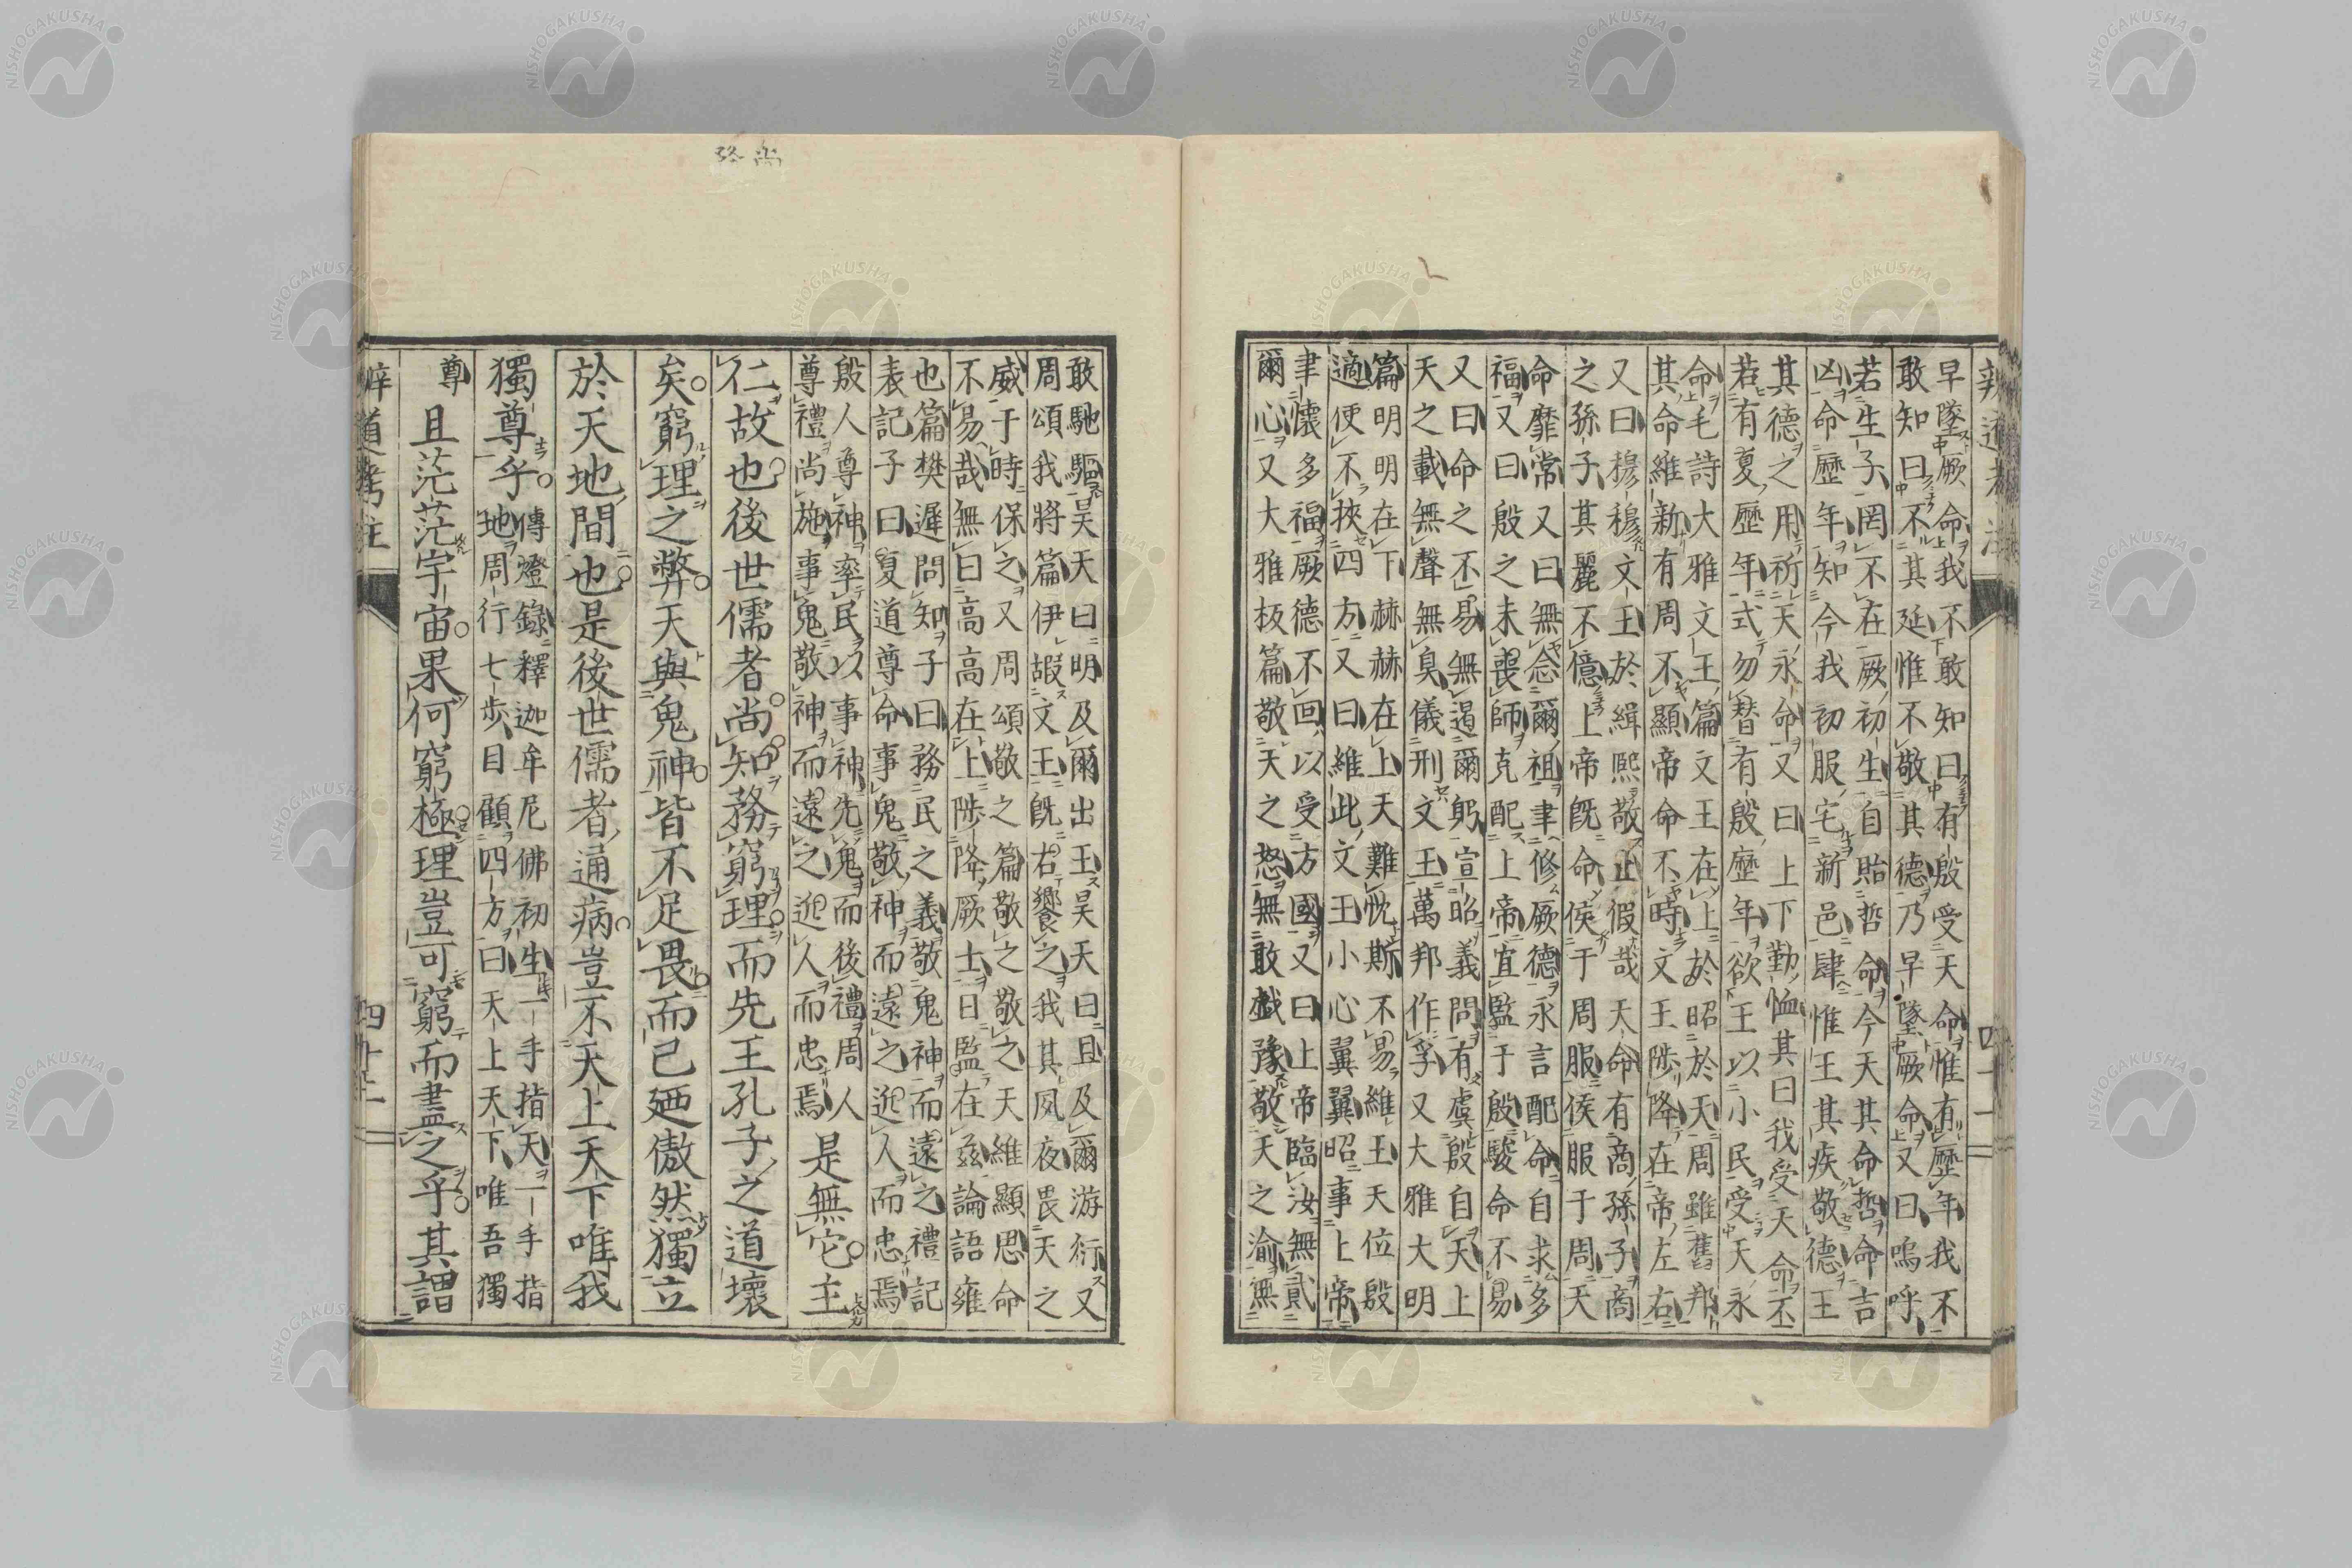 辨道考注
四十一
早墜厥命我不敢知曰有殷受天命惟有歷年我不
敢知曰不其延惟不敬其德乃早墜厥命又曰嗚呼
若生子罔不在厥初生自貽哲命今天其命哲命吉
凶命歷年知今我初服宅新邑肆惟王其疾敬德王
其德之用祈天永命又曰上下勤恤其曰我受天命丕
若有夏歷年式勿替有殷歷年欲王以小民受天永
命毛詩大雅文王篇文王在上於昭於天周雖舊邦
其命維新有周不顯帝命不時文王陟降在帝左右
又曰穆穆文王於緝熙敬止假哉天命有商孫子商
之孫子其麗不億上帝既命侯于周服侯服于周天
命靡常又曰無念爾祖聿修厥德永言配命自求多
福又曰殷之未喪師克配上帝宜監于殷駿命不易
又曰命之不易無遏爾躬宣昭義問有虞殷自天上
天之載無聲無臭儀刑文王萬邦作孚又大雅大明
篇明明在下赫赫在上天難忱斯不易維王天位殷
適使不挾四方又曰維此文王小心翼翼昭事上帝
聿懷多福厥德不回以受方國又曰上帝臨汝無貳
爾心又大雅板篇敬天之怒無敢戲豫敬天之渝無
敢馳驅昊天曰明及爾出王昊天曰旦及爾游衍又
周頌我將篇伊嘏文王既右饗之我其夙夜畏天之
威于時保之又周頌敬之篇敬之敬之天維顯思命
不易哉無曰高高在上陟降厥士日監在茲論語雍
也篇樊遲問知子曰務民之義敬鬼神而遠之禮記
表記子曰夏道尊命事鬼敬神而遠之近人而忠焉
殷人尊神率民以事神先鬼而後禮周人
尊禮尚施事鬼敬神而遠之近人而忠焉
是無它主
仁故也後世儒者尚知務窮理而先王孔子之道壞
矣窮理之弊天與鬼神皆不足畏而己廼傲然獨立
於天地間也是後世儒者通病豈不天上天下唯我
獨尊乎
傳燈錄釋迦牟尼佛初生一手指天一手指
地周行七步目顧四方曰天上天下唯吾獨
尊
且茫茫宇宙果何窮極理豈可窮而盡之乎其謂
辨道考注
四十二